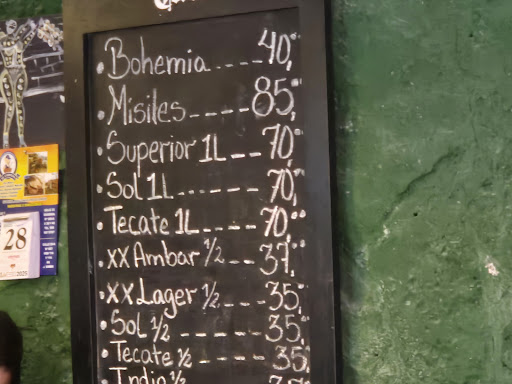 • Bohemia ---- 40.00
• Misiles ---- 85.00
• Superior 1L -- 70.00
• Sol 1L ------ 70.00
• Tecate 1L ---- 70.00
• XX Ambar ½ -- 37.00
• XX Lager ½ --- 35.00
• Sol ½ ------ 35.00
• Tecate ½ ----- 35.00
• India ½
28
2025